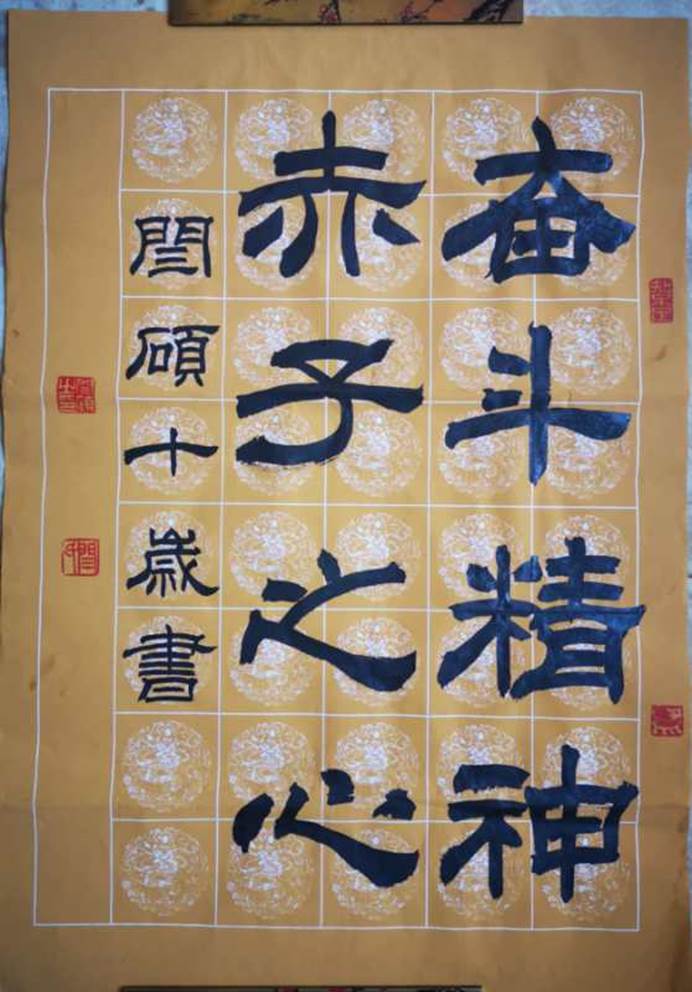 奋斗精神
赤子之心
閆碩十歲書